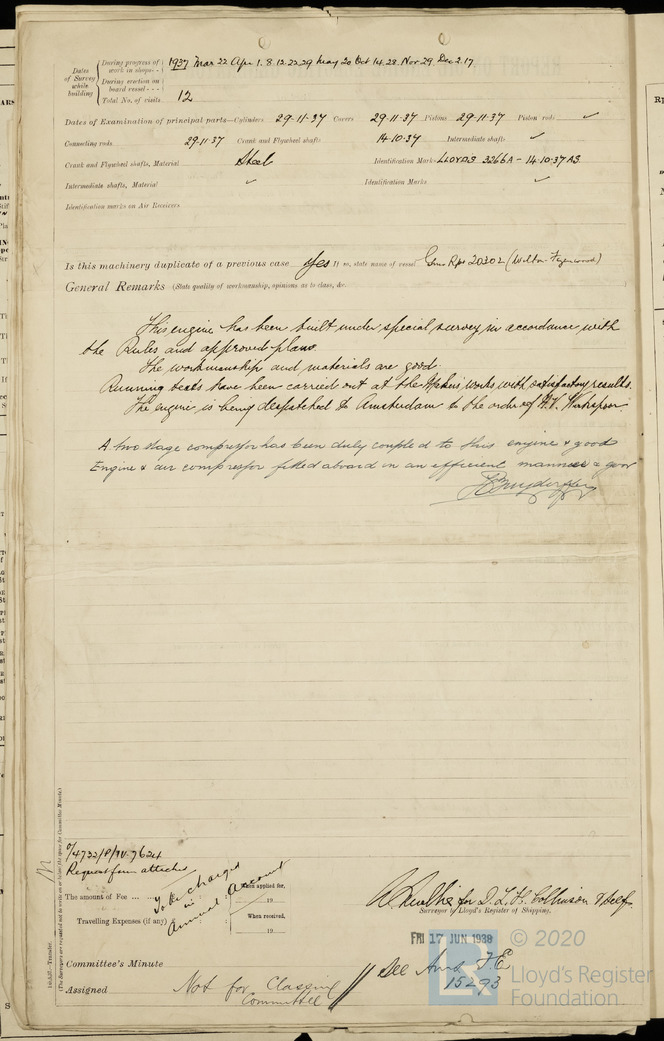 Dates of Survey while building
During progress of work in shops - - 1937 Mar 22 Apr 1. 8. 12. 22. 29 May 20 Oct 14. 28. Nov 29 Dec 2. 17.
During erection on board vessel - - -
Total No. of visits 12
Dates of Examination of principal parts—Cylinders 29-11-37 Covers 29-11-37 Pistons 29-11-37 Piston rods ✓
Connecting rods 29-11-37 Crank and Flywheel shafts 14-10-37 Intermediate shafts ✓
Crank and Flywheel shafts, Material Steel Identification Mark LLOYDS 3266A - 14-10-37 AS
Intermediate shafts, Material ✓ Identification Marks ✓
Identification marks on Air Receivers
Is this machinery duplicate of a previous case Yes If so, state name of vessel Rpt 20302 (Wilton
General Remarks (State quality of workmanship, opinions as to class, &c.
This engine has been built under special survey in accordance with
the Rules and approved plans.
The workmanship and materials are good.
Running tests have been carried out at the Makers works with satisfactory results.
The engine is being despatched to Amsterdam to the order of N.V. Werkspoor
A two stage compressor has been duly coupled to this engine & good
Engine & air compressor fitted aboard in an efficient manner & good
Request form attached
The amount of Fee ... ... To be charged in Annual Account
When applied for, 19
Travelling Expenses (if any) £
When received, 19
for D. L. H. Collinson & Self.
Surveyor to Lloyd's Register of Shipping.
FRI 17 JUN 1938
Committee's Minute
See Ams F.E. 15293
Assigned Not for Classing Committee
(The Surveyors are requested not to write on or below the space for Committee's Minute.)
© 2020
Lloyd's Register
Foundation